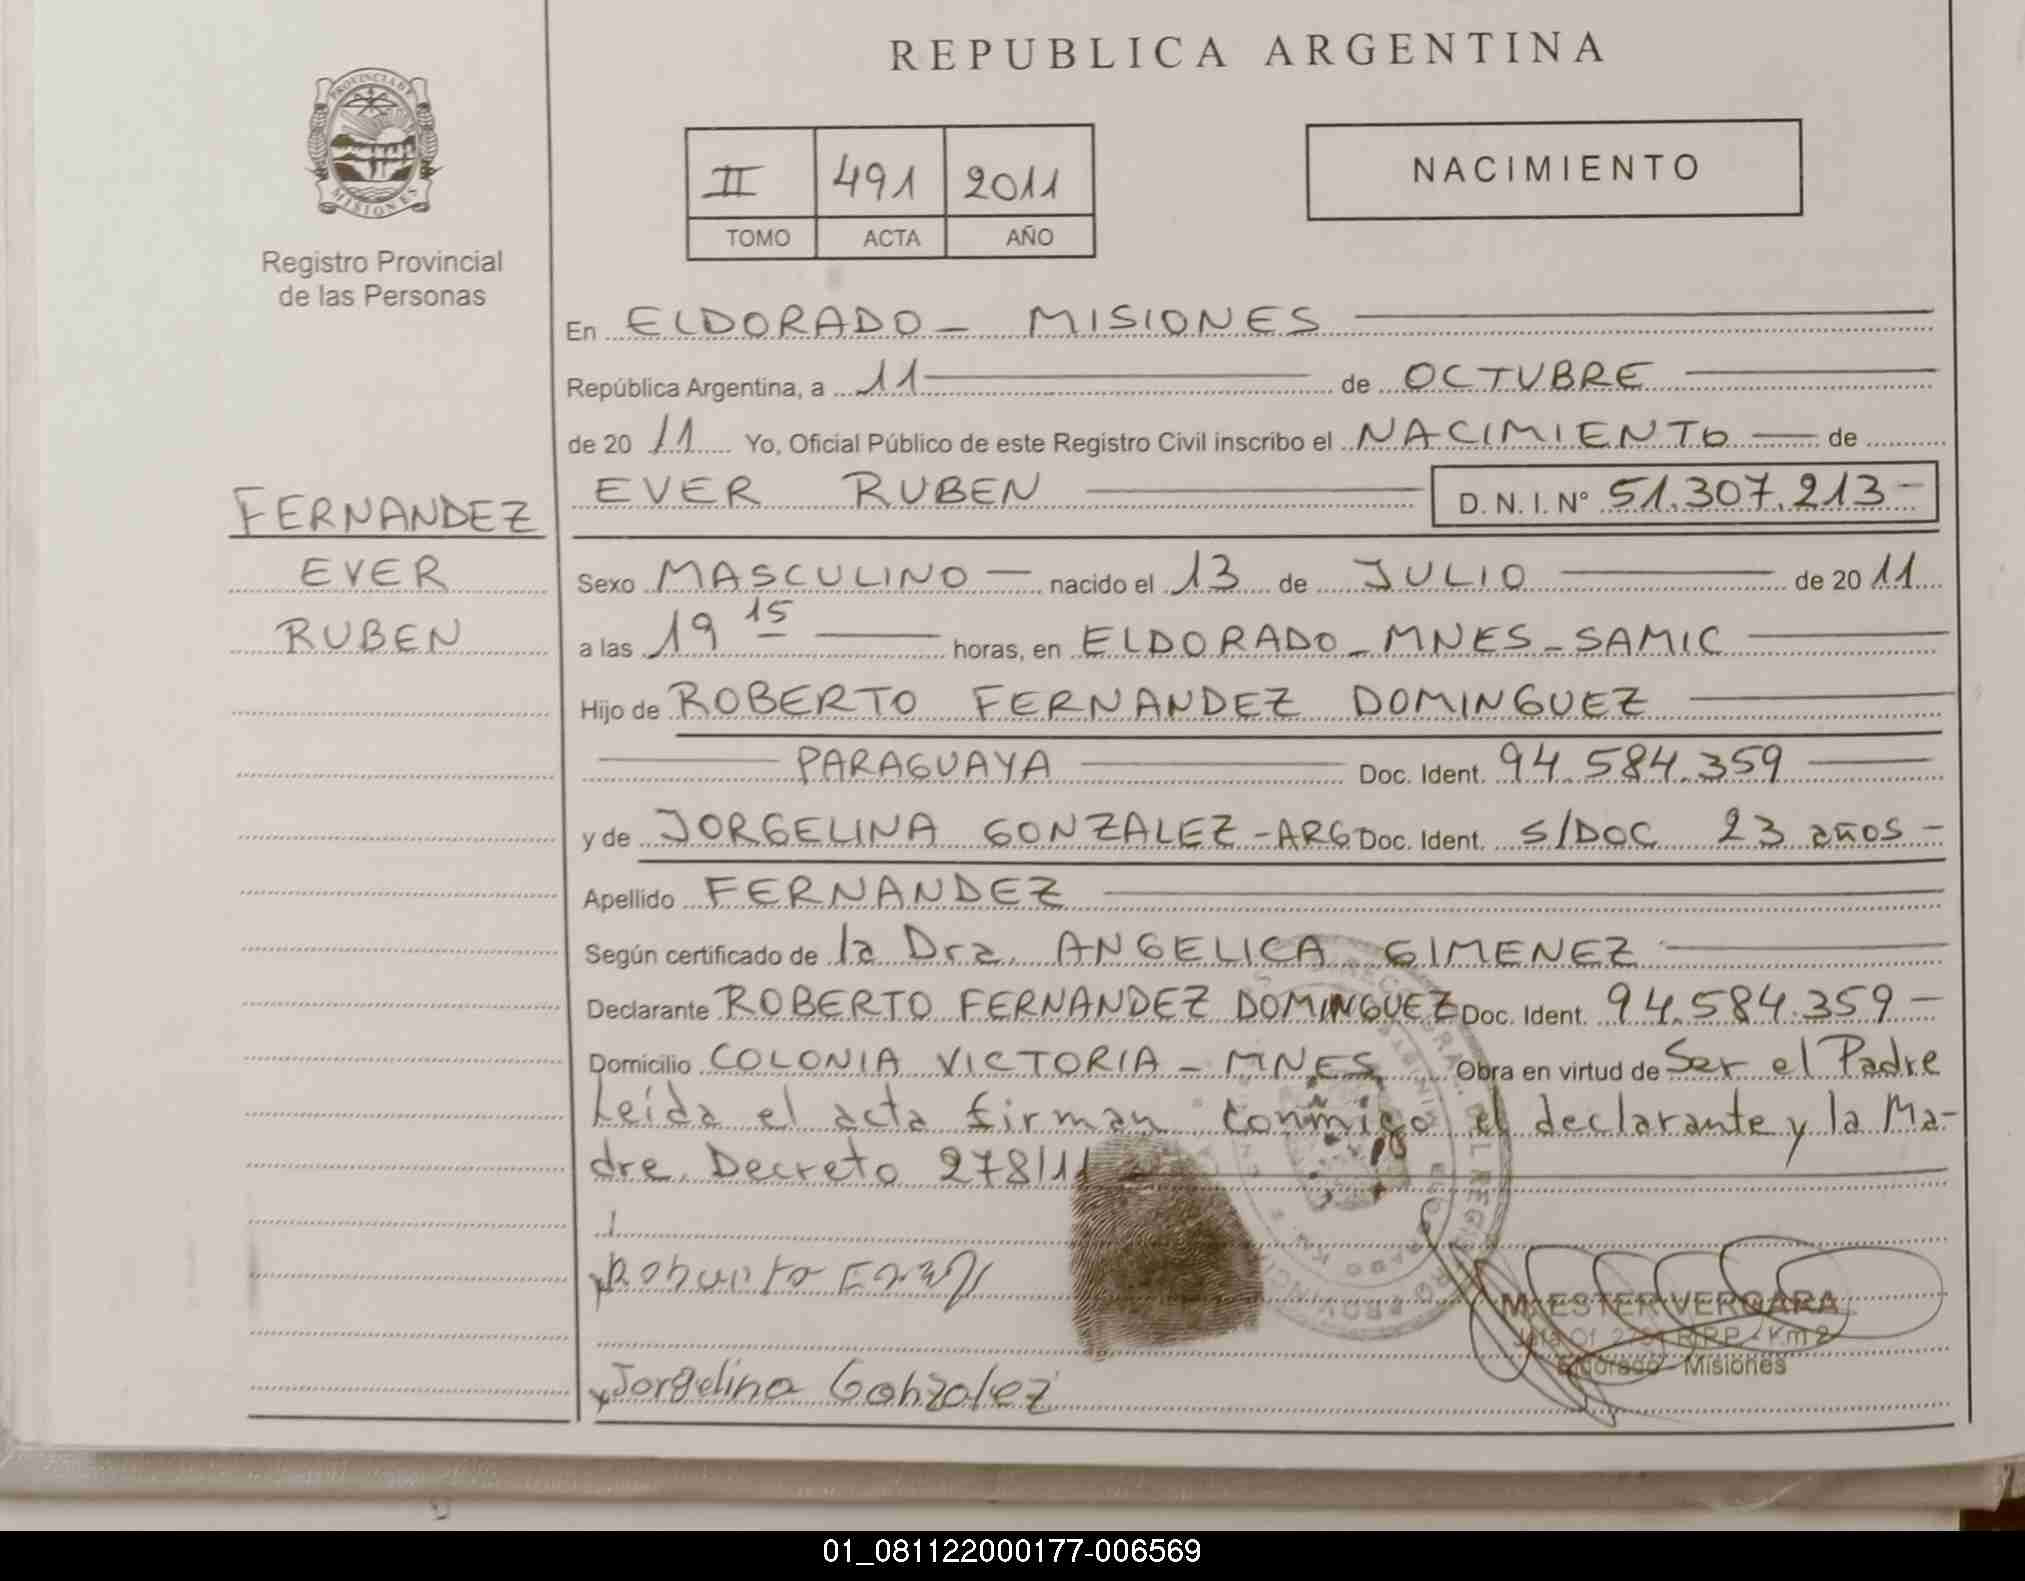 REPUBLICA ARGENTINA
PROVINCIA DE
MISIONES
Registro Provincial
de las Personas
II 491 2011
TOMO ACTA AÑO
NACIMIENTO
En ELDORADO - MISIONES
República Argentina, a 11 de OCTUBRE
de 20 11 Yo, Oficial Público de este Registro Civil inscribo el NACIMIENTO de
EVER RUBEN D. N. I. Nº 51.307.213-
FERNANDEZ
EVER
RUBEN
Sexo MASCULINO nacido el 13 de JULIO de 20 11
a las 19 15 horas, en ELDORADO - MNES - SAMIC
Hijo de ROBERTO FERNANDEZ DOMINGUEZ
PARAGUAYA Doc. Ident. 94.584.359
y de JORGELINA GONZALEZ - ARG Doc. Ident. S/DOC 23 años -
Apellido FERNANDEZ
Según certificado de la Dra. ANGELICA GIMENEZ
Declarante ROBERTO FERNANDEZ DOMINGUEZ Doc. Ident. 94.584.359 -
Domicilio COLONIA VICTORIA - MNES Obra en virtud de Ser el Padre
Leída el acta firman conmigo el declarante y la Ma-
dre. Decreto 278/11
M. ESTER VERGARA
Eldorado - Misiones
Jorgelina Gonzalez
01_081122000177-006569